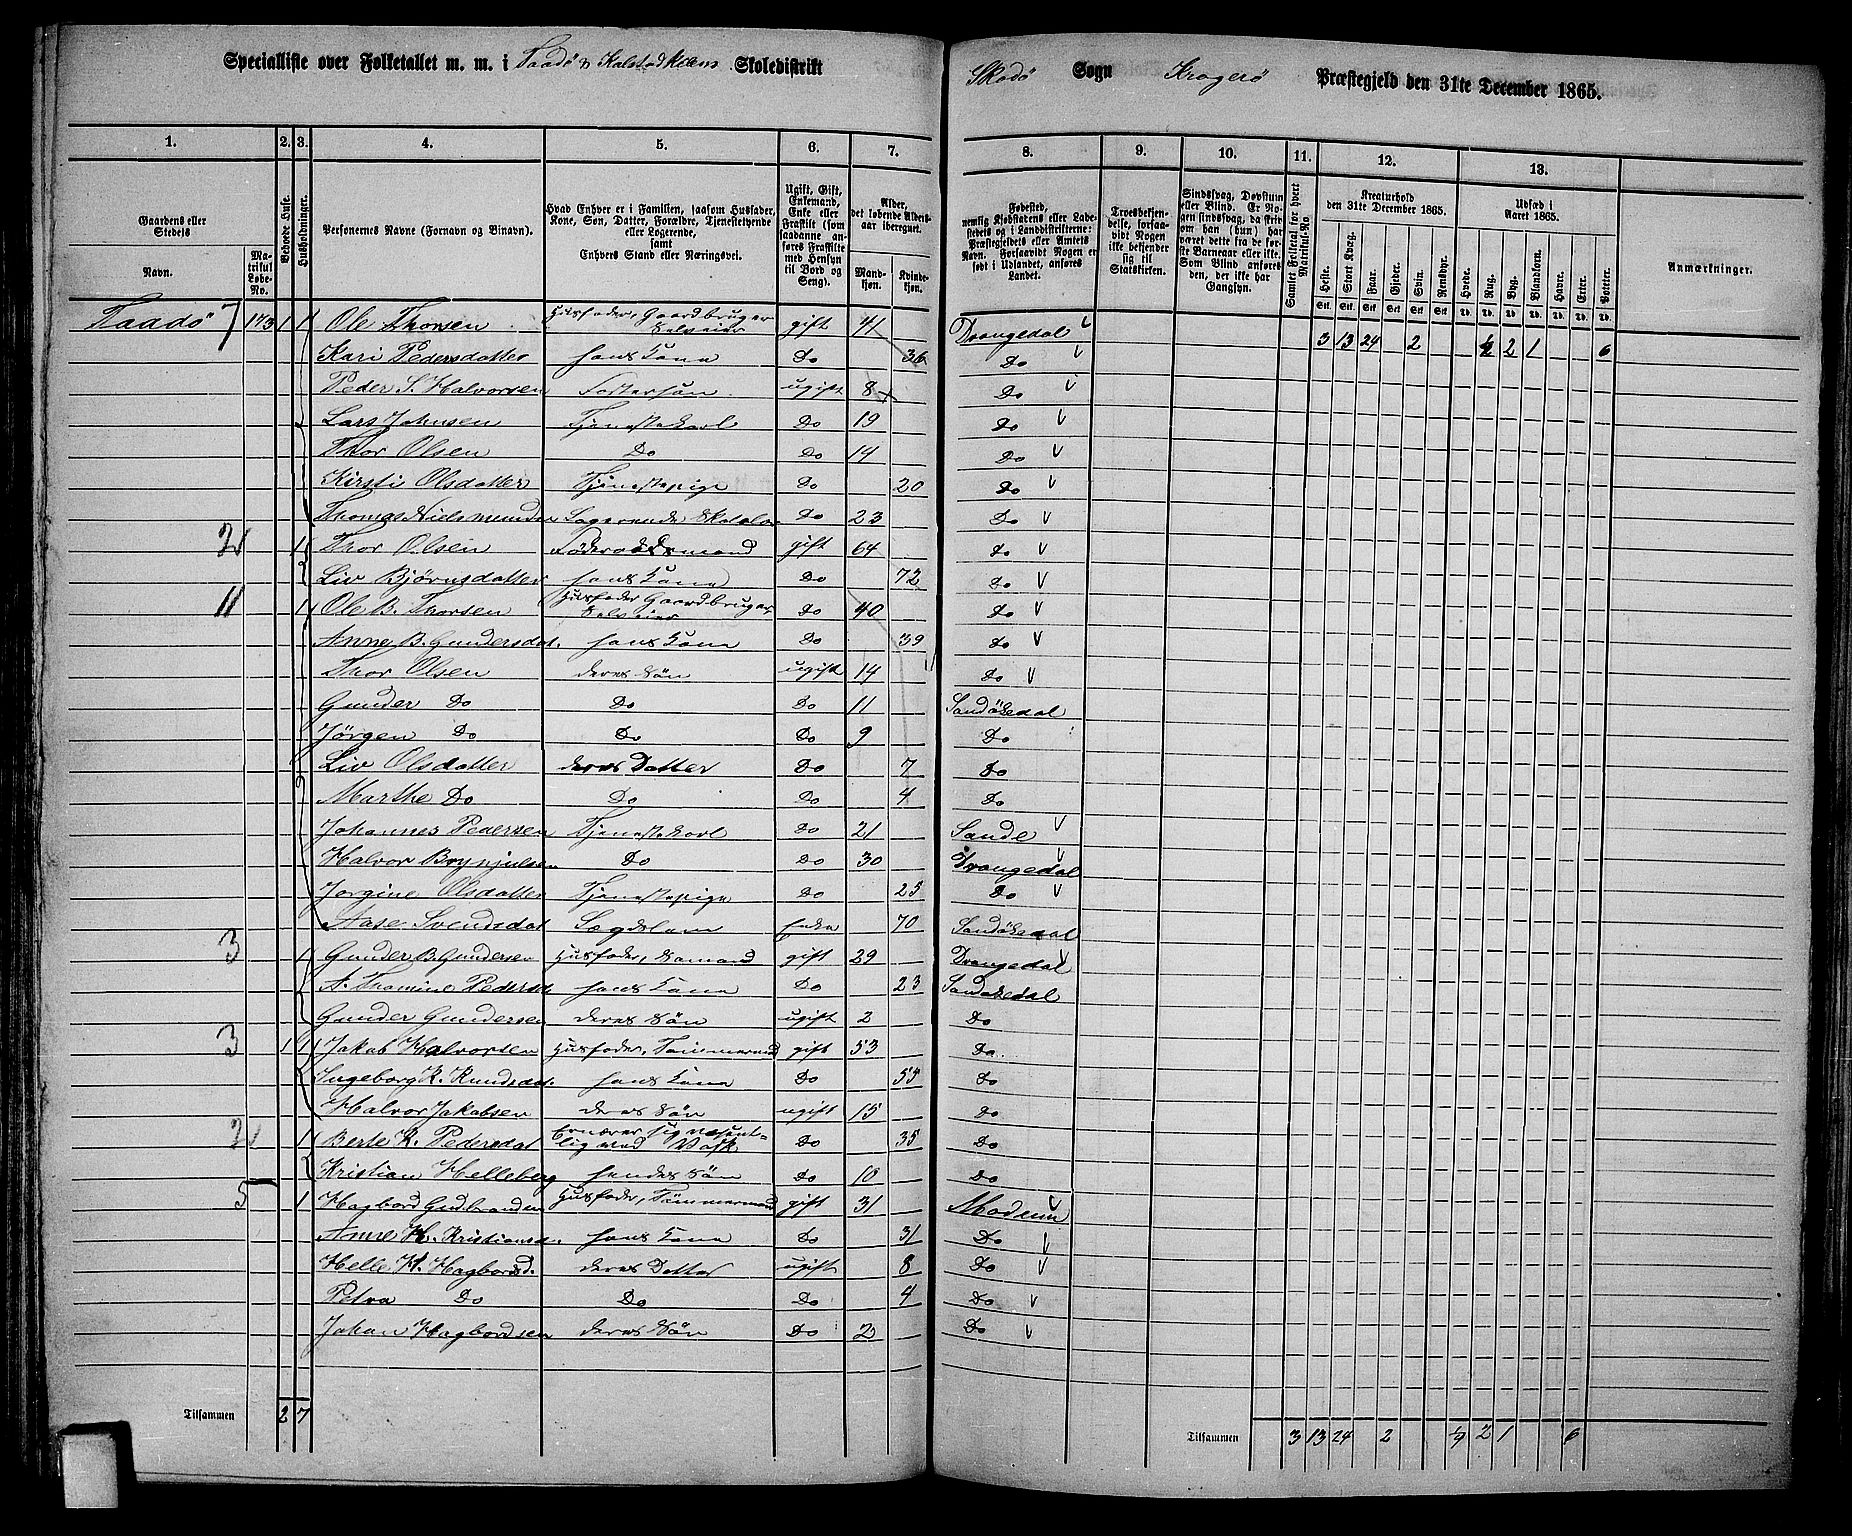 Specialliste over Folketallet m. m. i Taadö & Kalstadkilens Skoledistrikt Skadö Sogn Kragerö Præstegjeld den 31te December 1865.
1. 2. 3. 4. 5. 6. 7. 8. 9. 10. 11. 12. 13.
Gaardens eller Stedets
Navn.
Matrikul Løbe-No.
Beboede Huse.
Husholdninger.
Personernes Navne (Fornavn og Binavn).
Hvad Enhver er i Familien, saasom Husfader, Kone, Søn, Datter, Forældre, Tjenestetyende eller Logerende, samt Enhvers Stand eller Næringsvei.
Ugift, Gift, Enkemand, Enke eller Fraskilt (som saadanne anføres Fraskilte med Hensyn til Bord og Seng).
Alder, det løbende Alders-aar iberegnet.
Mandkjøn. Kvindekjøn.
Fødested, nemlig Kjøbstadens eller Ladestedets og i Landdistrikterne: Præstegjeldets eller Amtets Navn. Forsaavidt Nogen er født i Udlandet, anføres Landet.
Troesbekjendelse, forsaavidt Nogen ikke bekjender sig til Statskirken.
Sindssvag, Døvstum eller Blind. Er Nogen sindssvag, da skrives om han (hun) har været dette fra de første Barneaar eller ikke. Som Blind anføres den, der ikke har Gangsyn.
Samlet Folketal for hvert Matrikul-No
Kreaturhold den 31te December 1865.
Heste. Stort Kvæg. Faar. Gjeder. Svin. Rensdyr.
Udsæd i Aaret 1865.
Hvede. Rug. Byg. Blandkorn. Havre. Erter. Poteter.
Anmærkninger.
Taadö 7 173 1 1 Ole Thorsen Husfader, Gaardbruger Selveier gift 41 Drangedal 3 13 24 2 ½ 2 1 6
Kari Pedersdatter hans Kone Do 36 Do
Peder S. Halvorsen Fostersøn ugift 8 Do
Lars Johnsen Tjenestekarl Do 19 Do
Thor Olsen Do Do 14 Do
Kirsti Olsdatter Tjenestepige Do 20 Do
Thomas Logerende Do 23 Do
2 1 Thor Olsen Föderaadsmand gift 64 Do
Liv Bjørnsdatter hans Kone Do 72 Do
11 1 Ole B. Thorsen Husfader Gaardbruger Selveier Do 40 Do
Anne B. Gundersdat. hans Kone Do 39 Do
Thor Olsen deres Søn ugift 14 Do
Gunder Do Do Do 11 Sandökedal
Jörgen Do Do Do 9 Do
Liv Olsdatter deres Datter Do 7 Do
Marthe Do Do Do 4 Do
Johannes Pedersen Tjenestekarl Do 21 Sande
Halvor Brynjulsen Do Do 30 Drangedal
Jorgine Olsdatter Tjenestepige Do 25 Do
Aase Svendsdat Lægdslem Enke 70 Sandökedal
3 1 Gunder B. Gundersen Husfader, Sømand gift 29 Drangedal
A. Thomine Pedersd. hans Kone Do 23 Sandökedal
Gunder Gundersen deres Søn ugift 2 Do
3 1 1 Jakob Halvorsen Husfader, Tömmermd gift 53 Do
Ingeborg K. Knudsdat. hans Kone Do 55 Do
Halvor Jakobsen deres Søn ugift 15 Do
2 1 Berte K. Pedersdat Ernærer sig væsentlig med Vask Do 35 Do
Kristian Helleberg hendes Søn Do 10 Do
5 1 Hagbord Gudbrandsen Husfader, Tömmermand gift 31 Modum
Anne H. Kristiansd. hans Kone Do 31 Do
Helle H. Hagbordsd. deres Datter ugift 8 Do
Petra Do Do Do 4 Do
Johan Hagbordsen deres Søn Do 2 Do
Tilsammen 2 7 Tilsammen 3 13 24 2 ½ 2 1 6